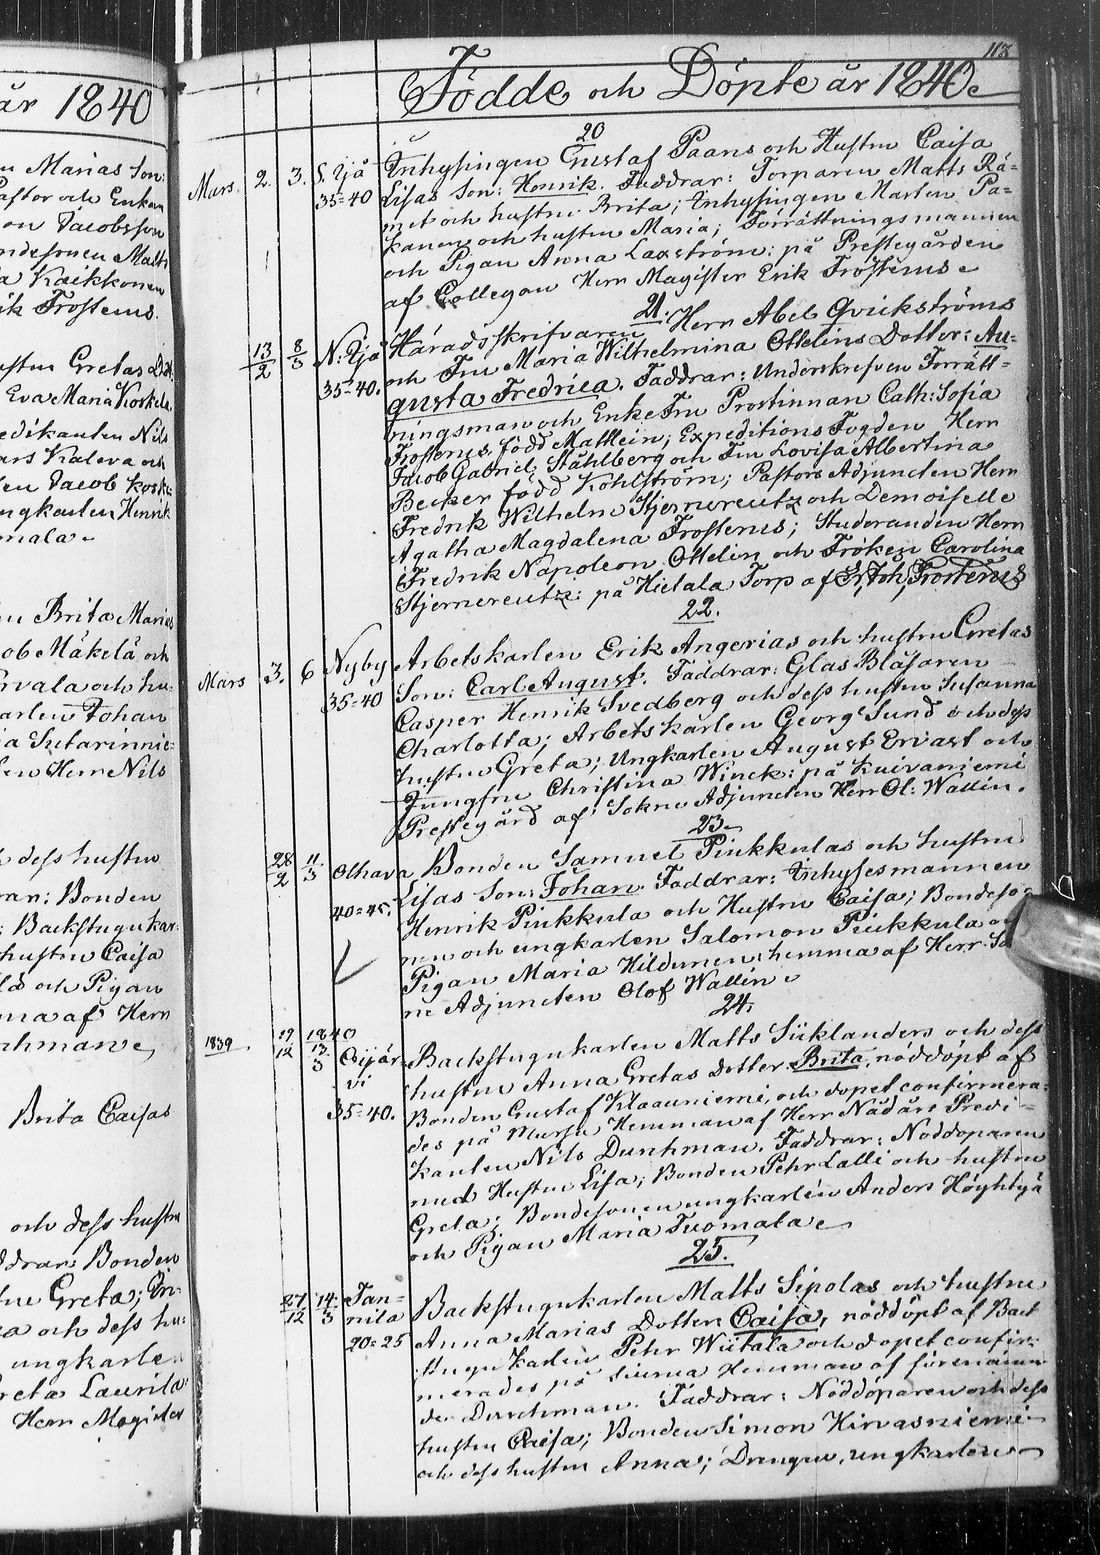 år 1840
n Marias Son:
Pastor och Enkan
on Jacobsson
ndesonen Matts
a Kaikkonen
ik Frosterus.
ustru Gretas
Eva Maria Koskela
edikanten Nils
ars Kaleva och
en Jacob Koski
ngkarlen Henrik
omala
n Brita Marias
ob Mäkelä och
ervala och hu-
arlen Johan
ia Sutarinnie-
en Herr Nils
dess hustru
rar: Bonden
; Backstugukar-
hustru Caisa
la och Pigan
ma af Herr
rchman
Brita Caisas
och dess hustru
ddrar: Bonden
tru Greta;
ra och dess hu-
ungkarlen
reta Laurila
Herr Magister
113
Födde och Döpte år 1840
20
Mars. 2. 3. S. Ijå Inhysingen Gustaf Paans och Hustru Caisa
35=40 Lisas Son: Henrik. Faddrar: Torparen Matts Rä-
met och hustru Brita; Inhysingen Marten Pa-
kanen och hustru Maria; Förrättningsmannen
och Pigan Anna Laxström: på Prestegården
af Collegan Herr Magister Erik Frosterus
21.
13/2 8/3 N: Ijå Häradsskrifvaren Herr Abel Qvickströms
35=40. och Fru Maria Wilhelmina Ottelins Dotter: Au-
gusta Fredrica. Faddrar: Underskrefven Förrätt-
ningsman och EnkeFru Prostinnan Cath: Sofia
Frosterus, född Mathlein; Expeditions Fogden Herr
Jacob Gabriel Ståhlberg och Fru Lovisa Albertina
Becker född Kohlström; Pastors Adjuncten Herr
Fredrik Wilhelm Stjerncreutz och Demoiselle
Agatha Magdalena Frosterus; Studeranden Herr
Fredrik Napoleon Ottelin och Fröken Carolina
Stjerncreutz: på Hietala Torp af Er. Joh. Frosterus
22.
Mars 3. 6 Nyby Arbetskarlen Erik Angerias och hustru Gretas
35=40 Son: Carl August. Faddrar: Glas Blåsaren
Casper Henrik Svedberg och dess hustru Susanna
Charlotta; Arbetskarlen Georg Sund och dess
hustru Greta; Ungkarlen August Ervast och
Jungfru Christina Winck: på Kuivaniemi
Prestegård af Sokne Adjuncten Herr Ol: Wallin.
23.
28/2 11/3 Olhava Bonden Samuel Pinkkulas och hustru
40=45. Lisas Son: Johan. Faddrar: Inhysesmannen
Henrik Pinkkula och Hustru Caisa; Bondeso-
nen och ungkarlen Salomon Pinkkula och
Pigan Maria Hildunen: hemma af Herr So
ne Adjuncten Olof Wallin
24.
1839 1840
12 13/3 Oijär- Backstugukarlen Matts Siiklanders och dess
vi hustru Anna Gretas Dotter: Brita, nöddöpt af
35=40. Bonden Gustaf Klaauniemi, och dopet confirmera-
des på Mursu Hemman af Herr Nådårs Predi-
kanten Nils Durchman. Faddrar: Nöddöparen
med Hustru Lisa; Bonden Pehr Lalli och hustru
Greta; Bondesonen ungkarlen Anders Höyhtyä
och Pigan Maria Tuomala
25.
27/12 14/3 Tan- Backstugukarlen Matts Sipolas och hustru
nila Anna Marias Dotter: Caisa, nöddöpt af Back
20=25 stugukarlen Pehr Wiitala och dopet confir-
merades på Hemman af förenämn
de Durchman. Faddrar: Nöddöparen och dess
hustru Caisa; Bonden Simon Hirvasniemi
och dess hustru Anna; Drengen, ungkarlen